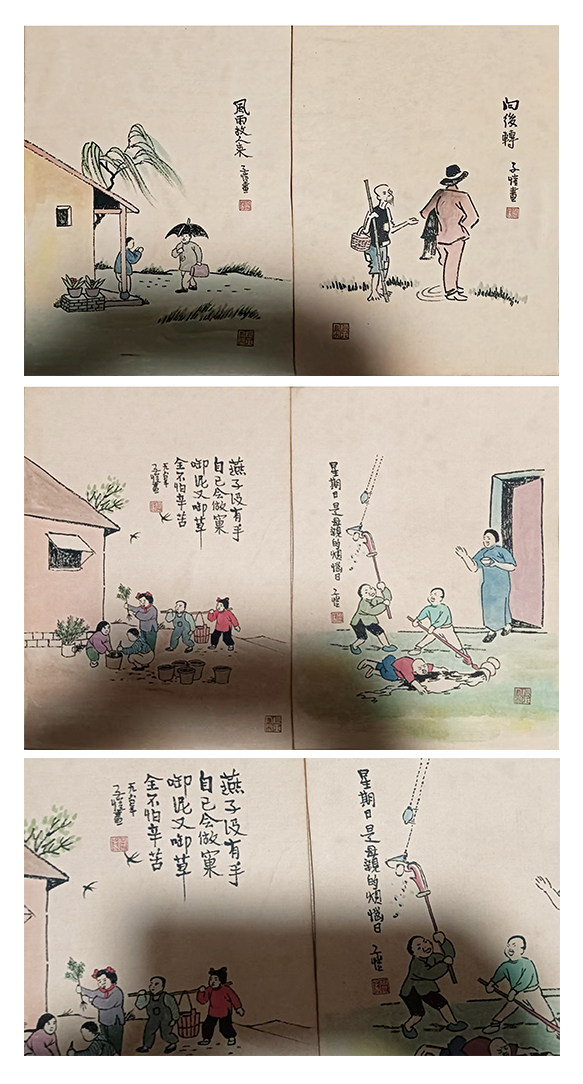 風雨故人来
子愷畫
向後轉
子愷畫
燕子没有手
自己会做窠
啣泥又啣草
全不怕辛苦
子愷畫
星期日是母親的煩惱日
子愷
燕子没有手
自己会做窠
啣泥又啣草
全不怕辛苦
子愷畫
星期日是母親的煩惱日
子愷